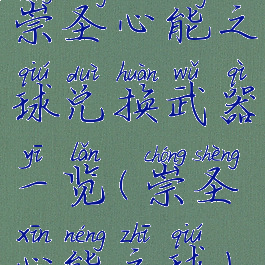 崇圣心能之
qiú duì huàn wǔ qì
球兑换武器
yī lǎn chóng shèng
一览(崇圣
xīn néng zhī qiú
心能之球)